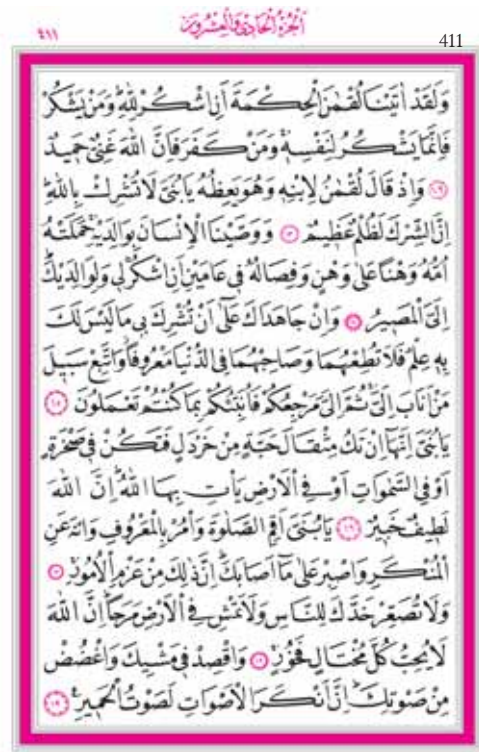 ٤١١
اَلْجُزْءُ الْحَادِي وَالْعِشْرُونَ
411
وَلَقَدْ اٰتَيْنَا لُقْمٰنَ الْحِكْمَةَ اَنِ اشْكُرْ لِلّٰهِۜ وَمَنْ يَشْكُرْ
فَاِنَّمَا يَشْكُرُ لِنَفْسِه۪ۚ وَمَنْ كَفَرَ فَاِنَّ اللّٰهَ غَنِيٌّ حَم۪يدٌ
﴿١٢﴾ وَاِذْ قَالَ لُقْمٰنُ لِابْنِه۪ وَهُوَ يَعِظُهُ يَا بُنَيَّ لَا تُشْرِكْ بِاللّٰهِۜ
اِنَّ الشِّرْكَ لَظُلْمٌ عَظ۪يمٌ ﴿١٣﴾ وَوَصَّيْنَا الْاِنْسَانَ بِوَالِدَيْهِۚ حَمَلَتْهُ
اُمُّهُ وَهْنًا عَلٰى وَهْنٍ وَفِصَالُهُ ف۪ي عَامَيْنِ اَنِ اشْكُرْ ل۪ي وَلِوَالِدَيْكَۜ
اِلَيَّ الْمَص۪يرُ ﴿١٤﴾ وَاِنْ جَاهَدَاكَ عَلٰٓى اَنْ تُشْرِكَ ب۪ي مَا لَيْسَ لَكَ
بِه۪ عِلْمٌ فَلَا تُطِعْهُمَا وَصَاحِبْهُمَا فِي الدُّنْيَا مَعْرُوفًاۘ وَاتَّبِعْ سَب۪يلَ
مَنْ اَنَابَ اِلَيَّۚ ثُمَّ اِلَيَّ مَرْجِعُكُمْ فَاُنَبِّئُكُمْ بِمَا كُنْتُمْ تَعْمَلُونَ ﴿١٥﴾
يَا بُنَيَّ اِنَّهَٓا اِنْ تَكُ مِثْقَالَ حَبَّةٍ مِنْ خَرْدَلٍ فَتَكُنْ ف۪ي صَخْرَةٍ
اَوْ فِي السَّمٰوَاتِ اَوْ فِي الْاَرْضِ يَأْتِ بِهَا اللّٰهُۜ اِنَّ اللّٰهَ
لَط۪يفٌ خَب۪يرٌ ﴿١٦﴾ يَا بُنَيَّ اَقِمِ الصَّلٰوةَ وَأْمُرْ بِالْمَعْرُوفِ وَانْهَ عَنِ
الْمُنْكَرِ وَاصْبِرْ عَلٰى مَٓا اَصَابَكَۜ اِنَّ ذٰلِكَ مِنْ عَزْمِ الْاُمُورِۚ ﴿١٧﴾
وَلَا تُصَعِّرْ خَدَّكَ لِلنَّاسِ وَلَا تَمْشِ فِي الْاَرْضِ مَرَحًاۜ اِنَّ اللّٰهَ
لَا يُحِبُّ كُلَّ مُخْتَالٍ فَخُورٍۚ ﴿١٨﴾ وَاقْصِدْ ف۪ي مَشْيِكَ وَاغْضُضْ
مِنْ صَوْتِكَۜ اِنَّ اَنْكَرَ الْاَصْوَاتِ لَصَوْتُ الْحَم۪يرِ۟ ﴿١٩﴾